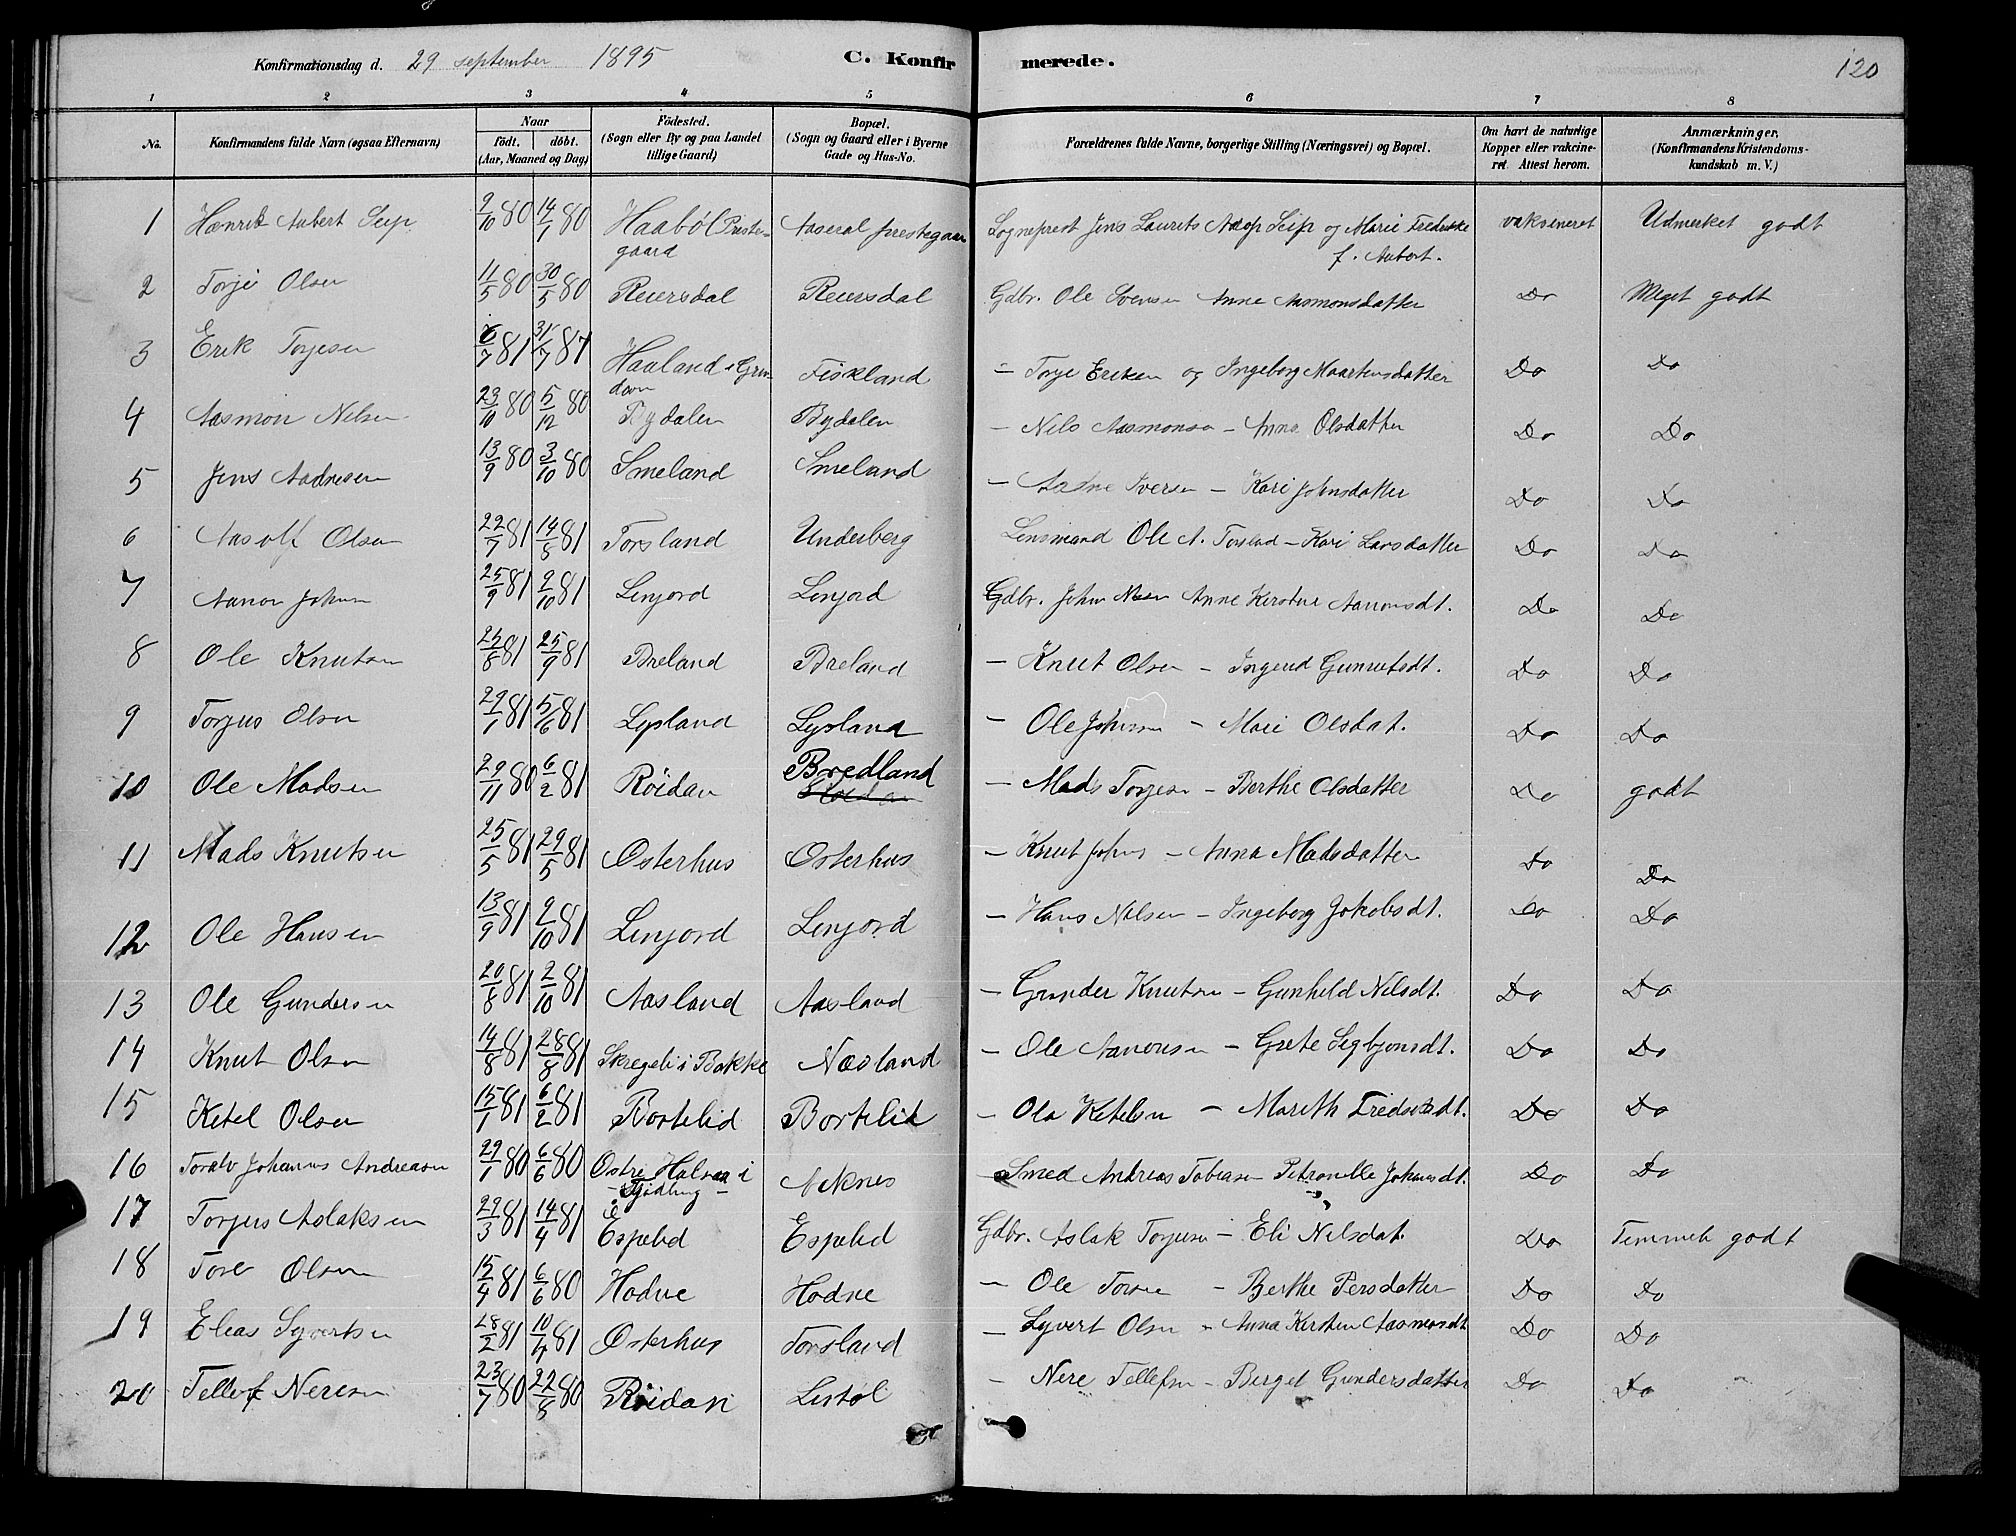 Konfirmationsdag d. 29 september 1895 C. Konfirmerede. 120
1 2 3 4 5 6 7 8
No. Konfirmandens fulde Navn (ogsaa Efternavn) Naar födt. döbt. (Aar, Maaned og Dag) Födested. (Sogn eller By og paa Landet tillige Gaard) Bopæl. (Sogn og Gaard eller i Byerne Gade og Hus-No. Forældrenes fulde Navne, borgerlige Stilling (Næringsvei) og Bopæl. Om havt de naturlige Kopper eller vakcineret. Attest herom. Anmærkninger. (Konfirmandens Kristendomskundskab m. V.)
1 Henrik Aubert Seip 9/10 80 14/1 80 Haaböl Prestegaard Aaseral prestegaar Sogneprest Jens Laurits Arup Seip og Marie Fredrikke f. Aubert. vaksineret Udmerket godt
2 Torje Olsen 11/5 80 30/5 80 Reiersdal Reiersdal Gdbr. Ole Svensen Anne Aasmonsdatter Do Meget godt
3 Erik Torjesen 6/7 81 31/7 81 Haaland i Grindum Fiskland — Torje Eriksen og Ingeborg Maartensdatter Do Do
4 Aasmon Nelsen 23/10 80 5/12 80 Bydalen Bydalen — Nils Aasmonsen — Anna Olsdatter Do Do
5 Jens Aadnesen 13/9 80 3/10 80 Smeland Smeland — Aadne Iversen — Kari Johnsdatter Do Do
6 Aasulf Olsen 22/7 81 14/8 81 Torsland Underberg Lensmand Ole A. Torsland — Kari Larsdatter Do Do
7 Aanon Johnsen 25/9 81 9/10 81 Lenjord Lenjord Gdbr. John Nilsen Anne Kirstine Aanonsdt. Do Do
8 Ole Knutsen 25/8 81 25/9 81 Breland Breland — Knut Olsen — Ingerid Gunnufsdt. Do Do
9 Torjus Olsen 29/1 81 5/6 81 Lysland Lysland — Ole Johnsen — Mari Olsdat. Do Do
10 Ole Madsen 29/11 80 6/2 81 Röidan Bredland Röidan — Mads Torjesen — Berthe Olsdatter Do godt
11 Mads Knutsen 25/5 81 29/5 81 Osterhus Osterhus — Knut Johns — Anna Madsdatter Do Do
12 Ole Hansen 13/9 81 9/10 81 Lenjord Lenjord — Hans Nilsen — Ingeborg Jakobsdt. Do Do
13 Ole Gundersen 20/8 81 2/10 81 Aasland Aasland — Gunder Knutsen — Gunhild Nilsdt. Do Do
14 Knut Olsen 14/8 81 28/8 81 Skregeli i Bakke Næsland — Ole Aanonsen — Grete Sigbjørnsdt. Do Do
15 Ketel Olsen 15/1 81 6/2 81 Bortelid Bortelid — Ola Ketelsen — Marith Fredriksdt. Do Do
16 Toralv Johannes Andreasen 29/1 80 6/6 80 Östre Halsaa i Aknes Smed Andreas Tobiasen — Petronelle Johansdt. Do Do
17 Torjus Aslaksen 29/3 81 14/4 81 Espelid Espelid Gdbr. Aslak Torjusen — Eli Nilsdat. Do Temmeli godt
18 Tore Olsen 15/4 81 6/6 80 Hodne Hodne — Ole Toresen — Berthe Persdatter Do Do
19 Elias Syvertsen 28/2 81 10/4 81 Osterhus Torsland — Syvert Olsen — Anna Kirsten Aasmonsdt Do Do
20 Tellef Neresen 23/7 80 22/8 80 Röidan Listöl — Nere Tellefsen — Berget Gundersdatter Do Do